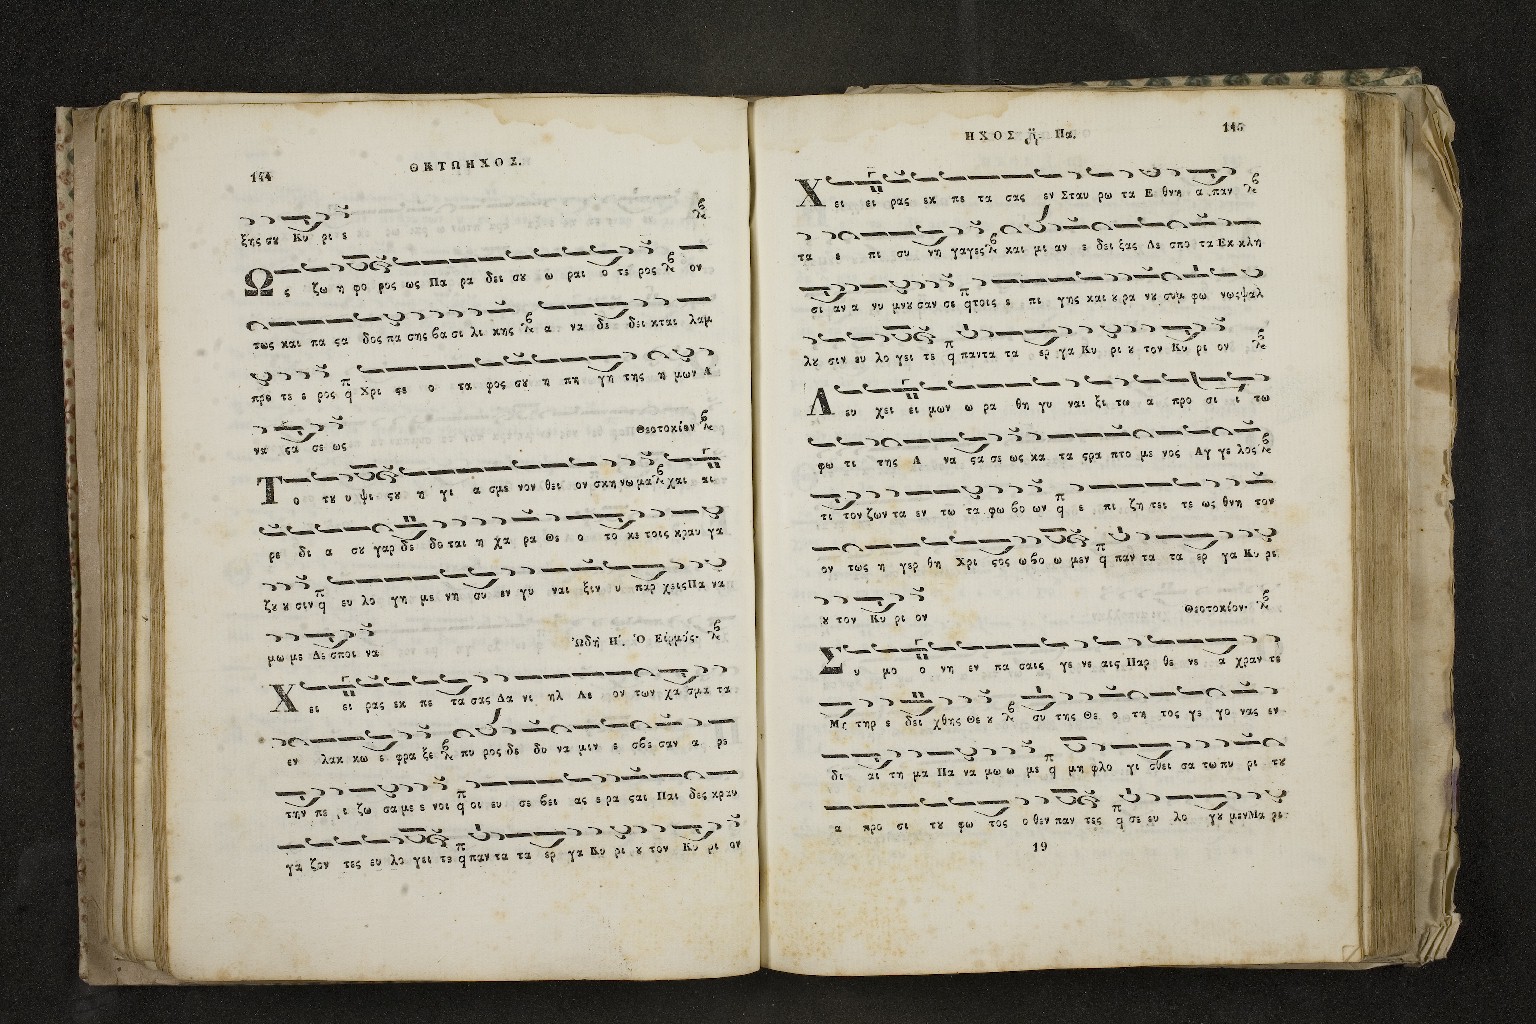 144
ΟΚΤΩΗΧΟΣ.
ξης σου Κυ ρι ε
Ως ζω η φο ρος ως Πα ρα δει σου ω ραι ο τε ρος ον
τως και πα ςα δος πα σης βα σι λι κης α να δε δει κται λαμ
προ τε ε ρος Χρι ςε ο τα φος σου η πη γη της η μων Α
να ςα σε ως
Θεοτοκίον
Το του υ ψι ςου η γι α σμε νον θει ον σκη νω μα χαι αι
ρε δι α σου γαρ δε δο ται η χα ρα Θε ο το κε τοις κραυ γα
ζου ου σιν ευ λο γη με νη συ εν γυ ναι ξιν υ παρ χεις Πα να
μω με Δε σποι να
Ὠδὴ Η΄. Ὁ Εἱρμός.
Χει ει ρας εκ πε τα σας Δα νι ηλ Λε ον των χα σμα τα
εν λακ κω ε φρα ξε πυ ρος δε δυ να μιν ε σβε σαν α ρε
την πε ρι ζω σα με ε νοι οι ευ σε βει ας ε ρα ςαι Παι δες κραυ
γα ζον τες ευ λο γει τε παν τα τα ερ γα Κυ ρι ου τον Κυ ρι ον
ΗΧΟΣ Πα.
145
Χει ει ρας εκ πε τα σας εν Σταυ ρω τα Ε θνη α παν
τα ε πι συ νη γαγες και μι αν ε δει ξας Δε σπο τα Εκ κλη
σι αν α νυ μνου σαν σε τοις ε πι γης και ου ρα νου συμ φω νως ψαλ
λου σιν ευ λο γει τε παντα τα ερ γα Κυ ρι ου τον Κυ ρι ον
Λευ χει ει μων ω ρα θη γυ ναι ξι τω α προ σι ι τω
φω τι της Α να ςα σε ως κα τα ςρα πτο με νος Αγ γε λος
τι τον ζων τα εν τω τα φω βο ων ε πι ζη τει τε ως θνη τον
ον τως η γερ θη Χρι ςος ω βο ω μεν παν τα τα ερ γα Κυ ρι
ου τον Κυ ρι ον
Θεοτοκίον.
Συ μο ο νη εν πα σαις γε νε αις Παρ θε νε α χραν τε
Μη τηρ ε δει χθης Θε ου συ της Θε ο τη τος γε γο νας εν
δι αι τη μα Πα να μω ω με μη φλο γι σθει σα τω πυ ρι του
α προ σι του φω τος ο θεν παν τες σε ευ λο γου μεν Μα ρι
19